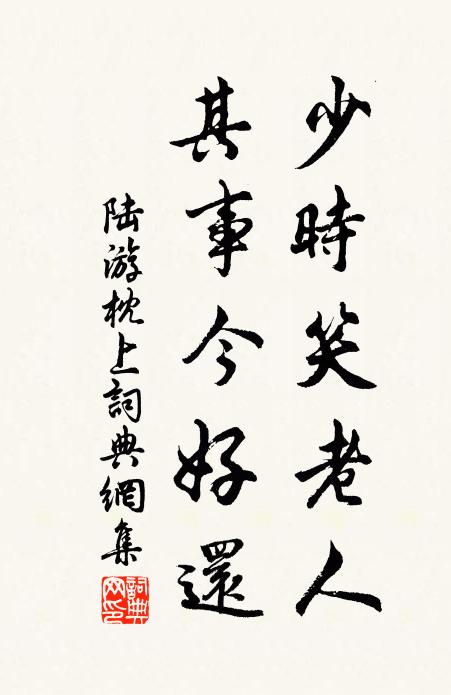 少時笑老人
其事今好還
陆游枕上詞典網集
詞典网印